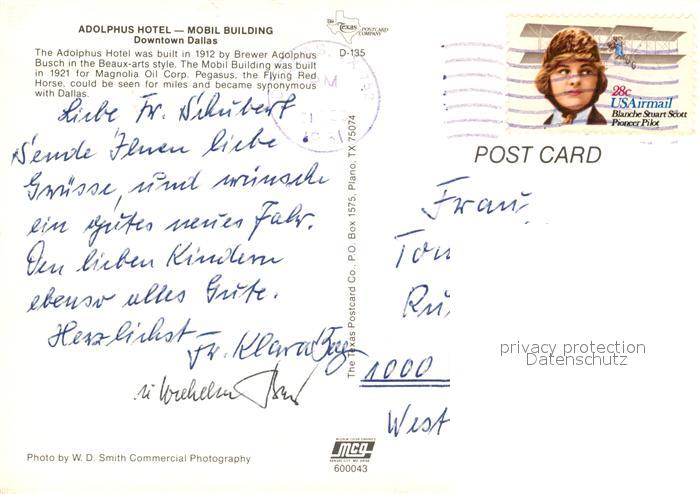 ADOLPHUS HOTEL — MOBIL BUILDING
Downtown Dallas
The Adolphus Hotel was built in 1912 by Brewer Adolphus
Busch in the Beaux-arts style. The Mobil Building was built
in 1921 for Magnolia Oil Corp. Pegasus, the Flying Red
Horse, could be seen for miles and became synonymous
with Dallas.
The Texas POSTCARD COMPANY
D-135
Liebe Fr. Schubert
Sende Ihnen liebe
Grüsse, und wünsche
ein gutes neues Jahr.
Den lieben Kindern
ebenso alles Gute.
Herzlichst Fr. Klara
u Wilhelm
Photo by W. D. Smith Commercial Photography
The Texas Postcard Co., P.O. Box 1575, Plano, TX 75074
mcg
600043
28c
USAirmail
Blanche Stuart Scott
Pioneer Pilot
POST CARD
Frau
Tom
Ru
1000
West
privacy protection
Datenschutz